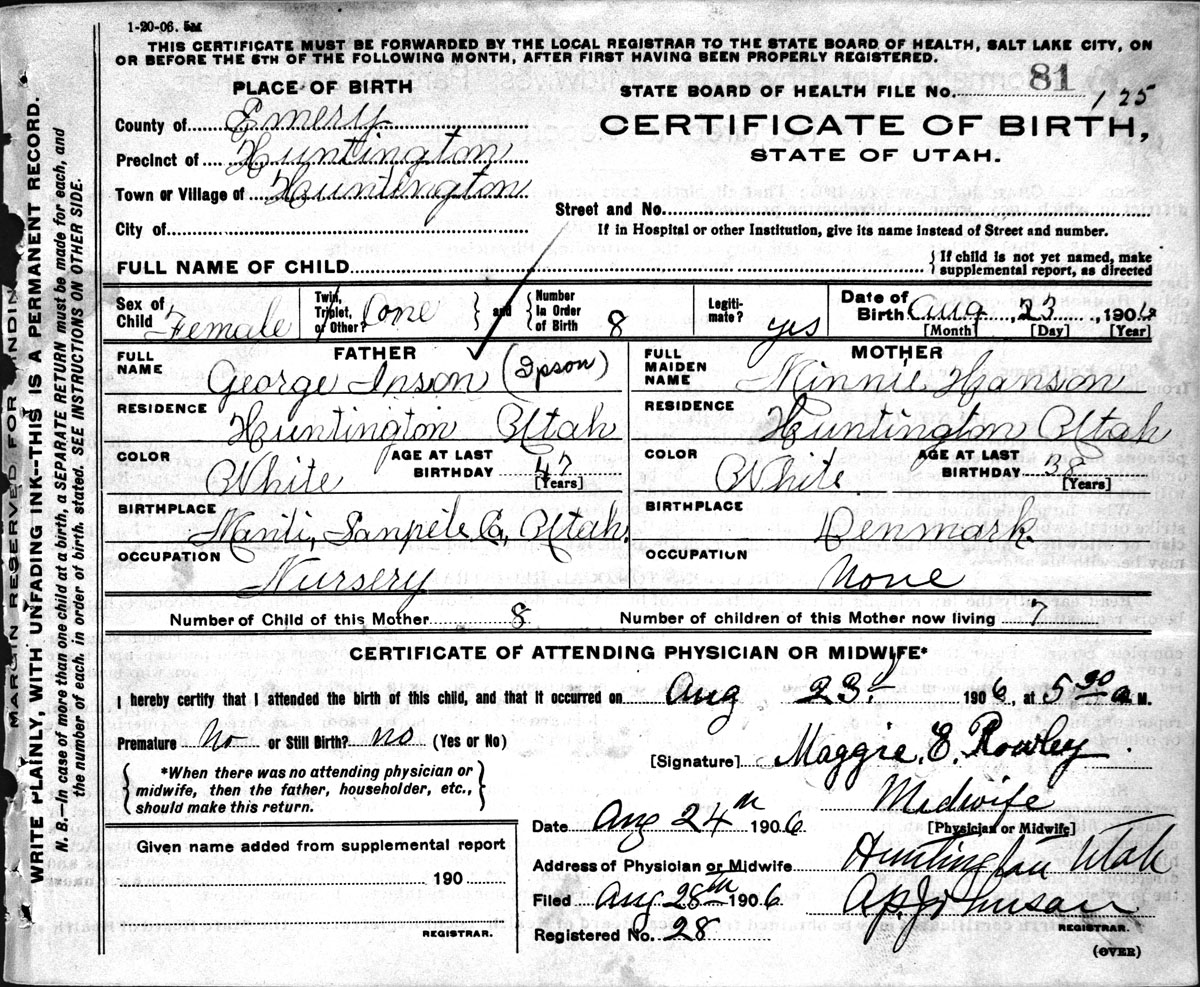 1-20-06. 5M
THIS CERTIFICATE MUST BE FORWARDED BY THE LOCAL REGISTRAR TO THE STATE BOARD OF HEALTH, SALT LAKE CITY, ON
OR BEFORE THE 5TH OF THE FOLLOWING MONTH, AFTER FIRST HAVING BEEN PROPERLY REGISTERED.
PLACE OF BIRTH
STATE BOARD OF HEALTH FILE NO. 81 / 25
County of Emery
CERTIFICATE OF BIRTH,
Precinct of Huntington
STATE OF UTAH.
Town or Village of Huntington
Street and No.
City of
If in Hospital or other Institution, give its name instead of Street and number.
FULL NAME OF CHILD
{ If child is not yet named, make
supplemental report, as directed
Sex of Child Female
Twin, Triplet, or Other? one } and { Number In Order of Birth 8
Legitimate? yes
Date of Birth Aug, 23, 1906
[Month] [Day] [Year]
FATHER
FULL NAME George Inson (Ipson)
MOTHER
FULL MAIDEN NAME Minnie Hanson
RESIDENCE Huntington Utah
RESIDENCE Huntington Utah
COLOR White AGE AT LAST BIRTHDAY 47 [Years]
COLOR White AGE AT LAST BIRTHDAY 38 [Years]
BIRTHPLACE Manti, Sanpete Co, Utah.
BIRTHPLACE Denmark.
OCCUPATION Nursery
OCCUPATION None
Number of Child of this Mother 8
Number of children of this Mother now living 7
CERTIFICATE OF ATTENDING PHYSICIAN OR MIDWIFE*
I hereby certify that I attended the birth of this child, and that it occurred on Aug 23d 1906, at 5 30 a M.
Premature No or Still Birth? no (Yes or No)
[Signature] Maggie. E. Rowley
{ *When there was no attending physician or
midwife, then the father, householder, etc.,
should make this return. }
Midwife
[Physician or Midwife]
Date Aug 24th 1906
Address of Physician or Midwife Huntington Utah
Filed Aug 28th 1906
REGISTRAR.
Registered No. 28
(OVER)
Given name added from supplemental report
190
REGISTRAR.
MARGIN RESERVED FOR BINDING
WRITE PLAINLY, WITH UNFADING INK--THIS IS A PERMANENT RECORD.
N. B.—In case of more than one child at a birth, a SEPARATE RETURN must be made for each, and
the number of each, in order of birth, stated. SEE INSTRUCTIONS ON OTHER SIDE.